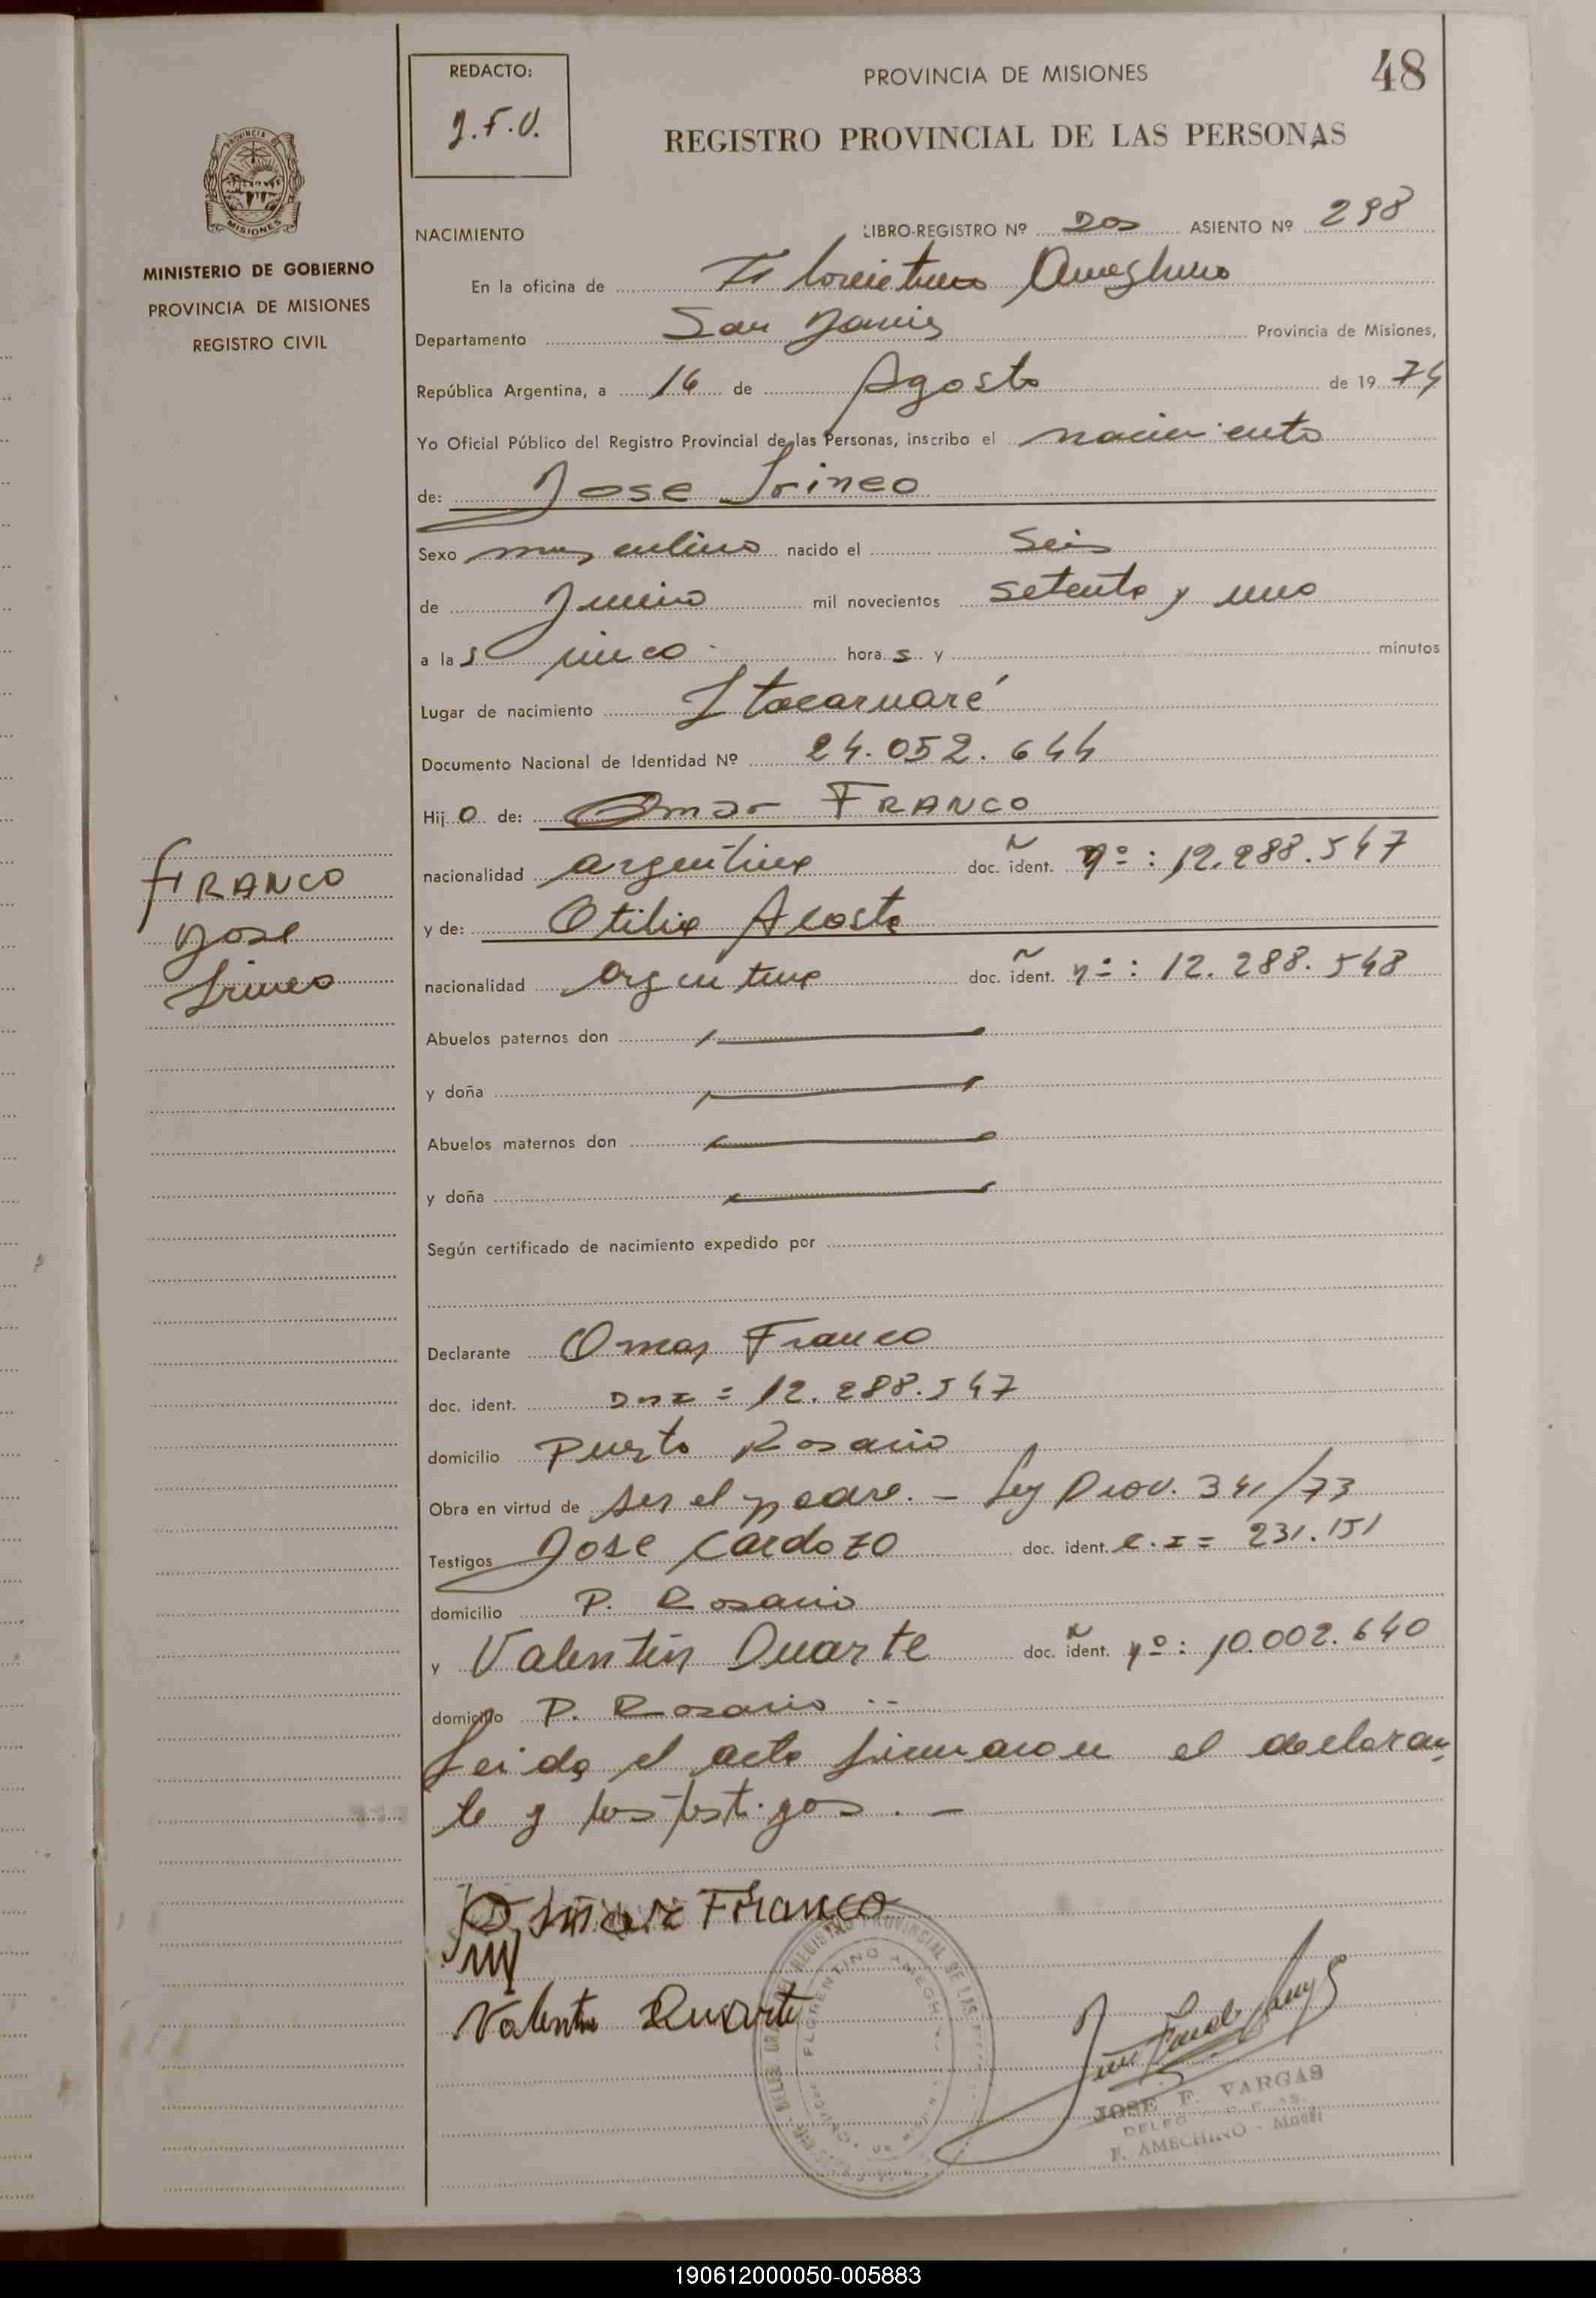 48
REDACTO:
J.F.V.
PROVINCIA DE MISIONES
REGISTRO PROVINCIAL DE LAS PERSONAS
PROVINCIA
MISIONES
MINISTERIO DE GOBIERNO
PROVINCIA DE MISIONES
REGISTRO CIVIL
FRANCO
Jose
Irineo
NACIMIENTO LIBRO-REGISTRO Nº Dos ASIENTO Nº 298
En la oficina de Florentino Ameghino
Departamento San Javier Provincia de Misiones,
República Argentina, a 16 de Agosto de 1974
Yo Oficial Público del Registro Provincial de las Personas, inscribo el nacimiento
de: Jose Irineo
Sexo masculino nacido el Seis
de Junio mil novecientos setenta y uno
a las cinco horas y minutos
Lugar de nacimiento Itacaruaré
Documento Nacional de Identidad Nº 24.052.644
Hijo de: Omar FRANCO
nacionalidad argentina doc. ident. nº: 12.288.547
y de: Otilia Acosta
nacionalidad argentina doc. ident. nº: 12.288.548
Abuelos paternos don
y doña
Abuelos maternos don
y doña
Según certificado de nacimiento expedido por
Declarante Omar Franco
doc. ident. DNI = 12.288.547
domicilio Puerto Rosario
Obra en virtud de ser el padre. - Ley Prov. 341/73
Testigos Jose Cardozo doc. ident. C.I = 231.151
domicilio P. Rosario
y Valentín Duarte doc. ident. nº: 10.002.640
domicilio P. Rosario
Leida el acta firmaron el declaran
te y los testigos. -
Omar Franco
Valentin Duarte
FLORENTINO AMEGHINO
JOSE F. VARGAS
F. AMEGHINO - Mnes
190612000050-005883